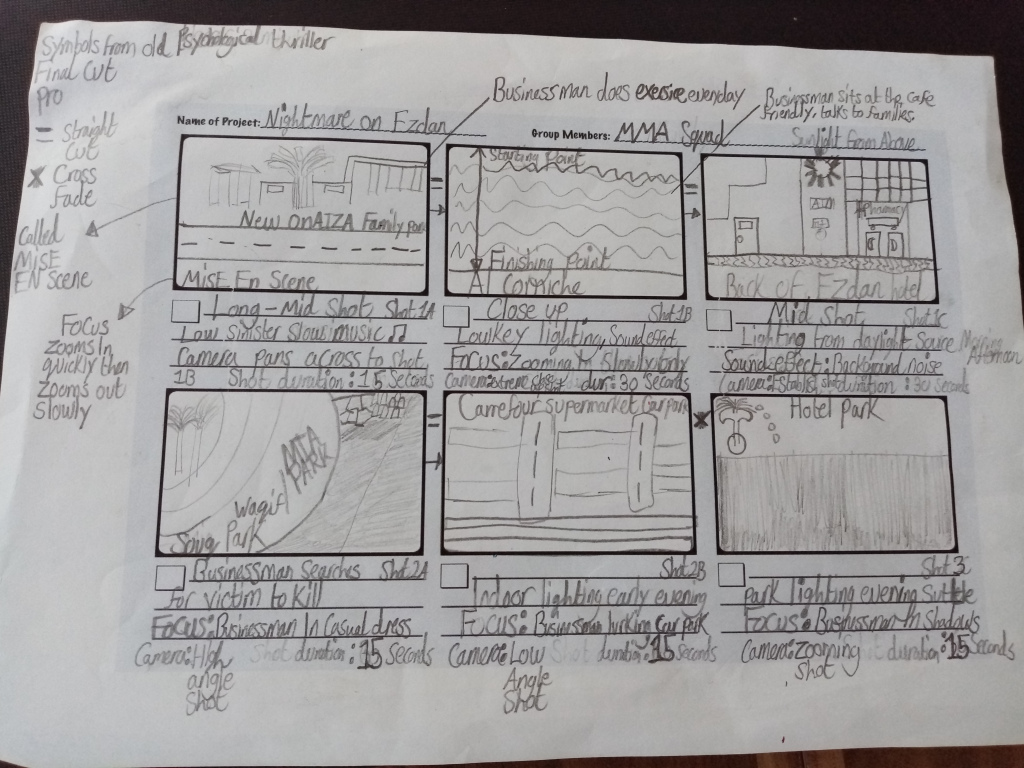 Symbols from old Psychological thriller
Final Cut
Pro
= Straight
Cut
x Cross
Fade
Called
MisE
EN Scene
Focus
zooms In
quickly then
zooms out
slowly
Businessman does exersise everyday
Businessman sits at the Cafe
friendly, talks to families
Name of Project: Nightmare on Ezdan
Group Members: MMA Squad
Sunlight from Above
New On AIZA Family
MisE En Scene
Long-Mid Shot, Shot 1A
Low Sinister Slow music
Camera pans across to Shot
1B Shot duration: 15 Seconds
Starting Point
Finishing Point
Al Corniche
Close up Shot 1B
Lowkey lighting, Sound effect
Focus: Zooming In
Camera: extreme dur: 30 Seconds
Pharmacy
Back Of Ezdan hotel
Mid Shot, Shot 1C
Lighting from daylight Source Morning
Afternoon
Sound effect: Background noise
Camera: duration: 30 Seconds
PARK
Wagif
Souq Park
Businessman Searches Shot 2A
For victim to kill
Focus: Businessman In Casual dress
Camera: High Shot duration: 15 Seconds
angle
Shot
Carrefour supermarket Car park
Shot 2B
Indoor lighting early evening
Focus: Businessman lurking Car park
Camera: Low Shot duration: 15 Seconds
Angle
Shot
Hotel Park
Shot 3C
park lighting evening
Focus: Businessman In Shadows
Camera: Zooming duration: 15 Seconds
Shot